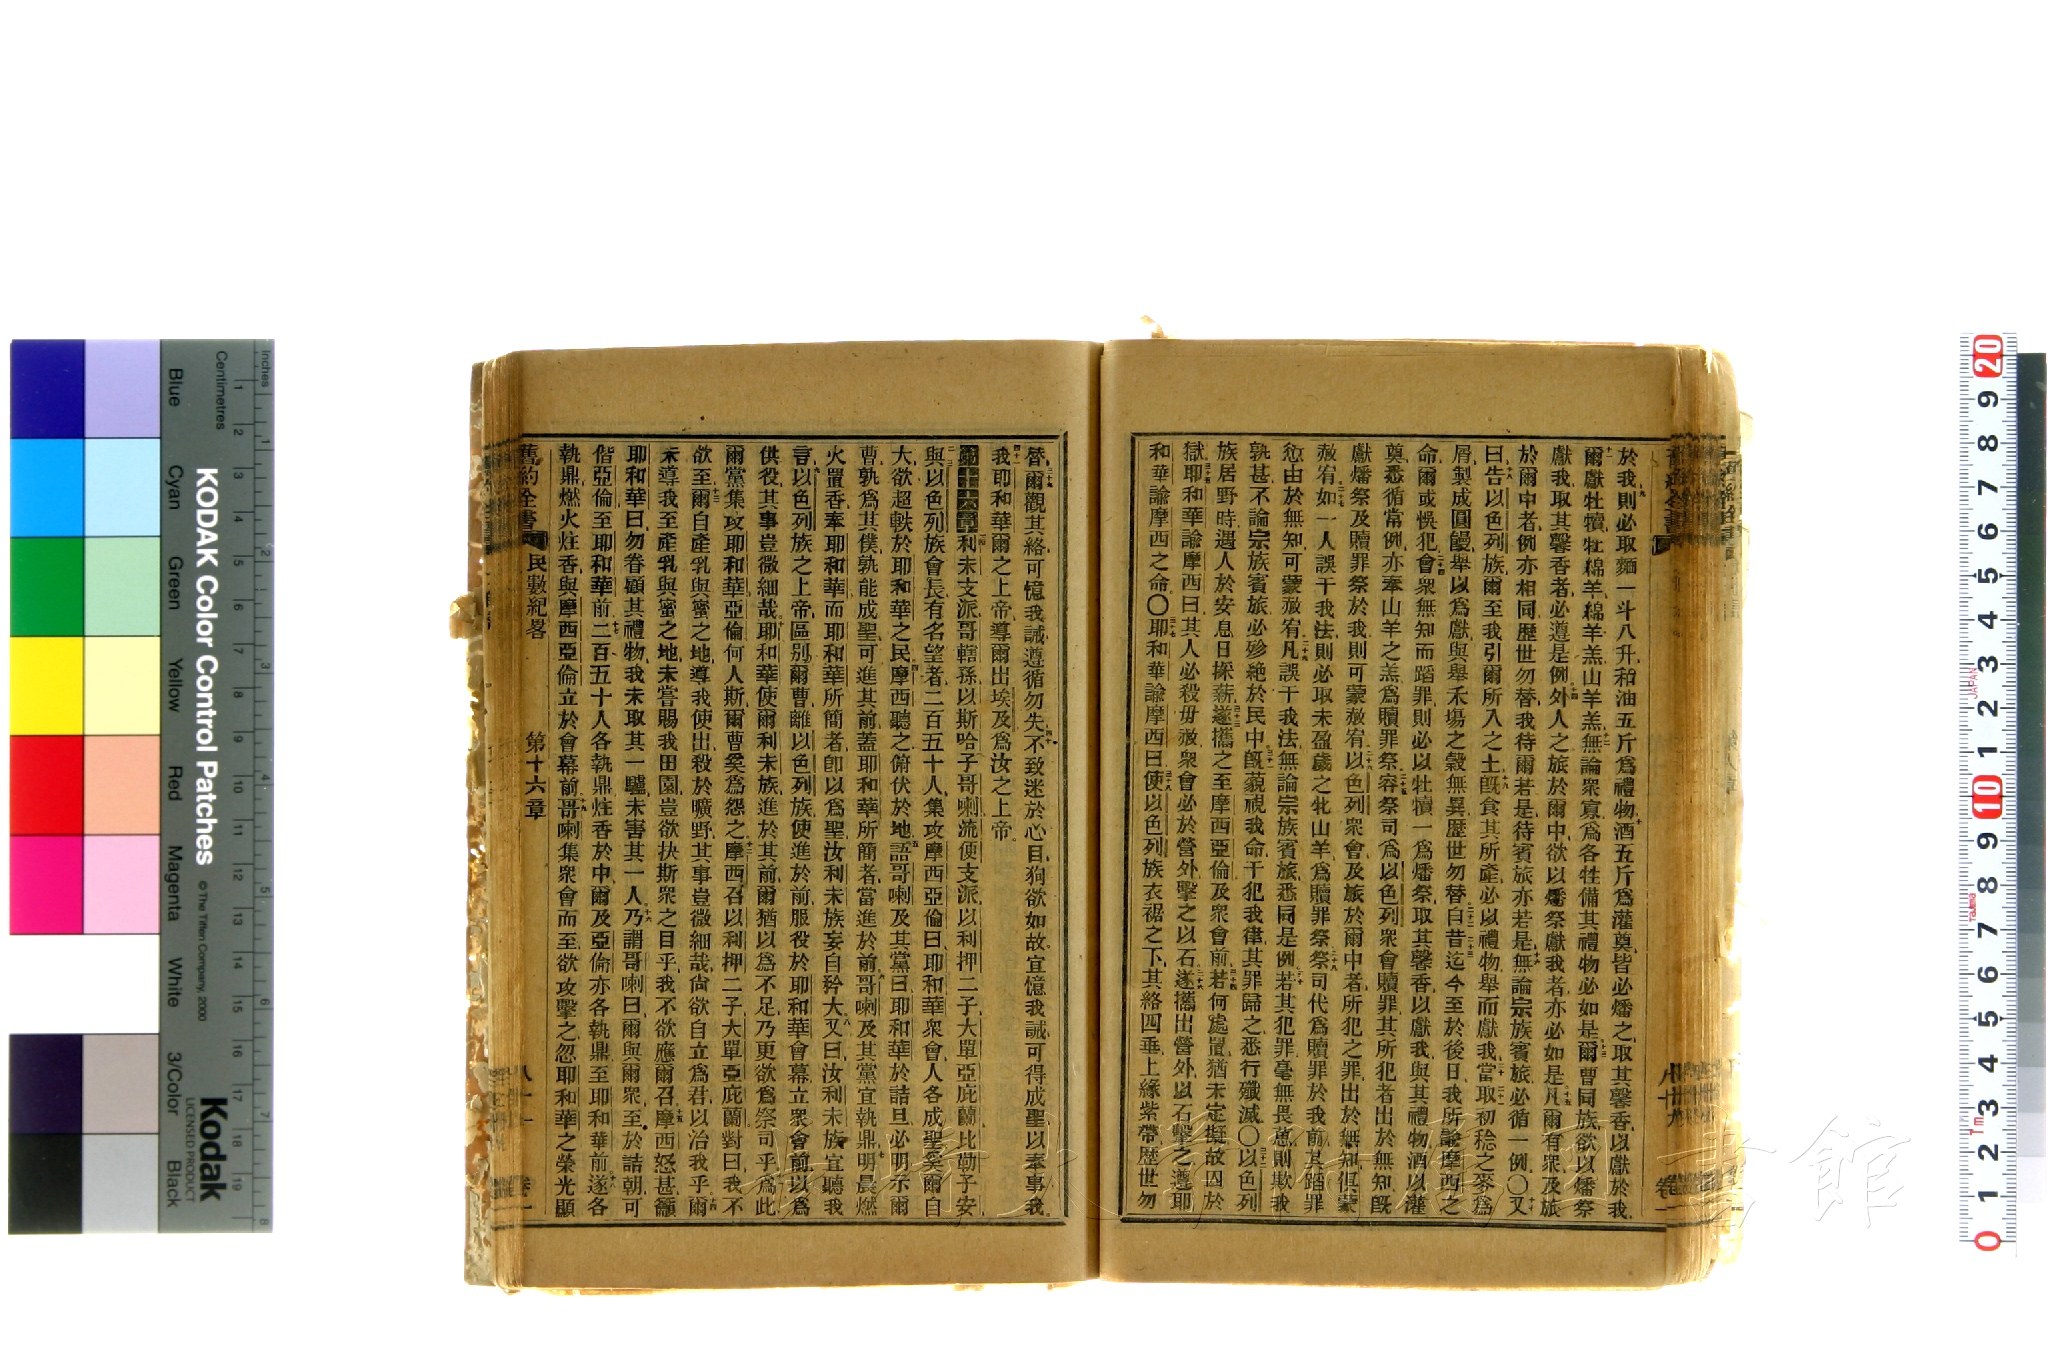 於我則必取麵一斗八升和油五斤爲禮物酒五斤爲灌奠皆必燔之取其馨香以獻於我
爾獻牡犢牡綿羊綿羊羔山羊羔無論衆寡爲各牲備其禮物必如是爾曹同族欲以燔祭
獻我取其馨香者必遵是例外人之旅於爾中欲以燔祭獻我者亦必如是凡爾有衆及旅
於爾中者例亦相同歷世勿替我待爾若是待賓旅亦若是無論宗族賓旅必循一例〇又
曰告以色列族爾至我引爾所入之土旣食其所產必以禮物舉而獻我當取初稔之麥爲
屑製成圓饅舉以爲獻與舉禾場之穀無異歷世勿替自昔迄今至於後日我所諭摩西之
命爾或悞犯會衆無知而蹈罪則必以牡犢一爲燔祭取其馨香以獻我與其禮物酒以灌
奠悉循常例亦牽山羊之羔爲贖罪祭容祭司爲以色列衆會贖罪其所犯者出於無知旣
獻燔祭及贖罪祭於我則可蒙赦宥以色列衆會及旅於爾中者所犯之罪出於無知俱蒙
赦宥如一人誤干我法則必取未盈歲之牝山羊爲贖罪祭祭司代爲贖罪於我前其蹈罪
愆由於無知可蒙赦宥凡誤干我法無論宗族賓旅悉同是例若其犯罪毫無畏葸則欺我
孰甚不論宗族賓旅必殄絶於民中旣藐視我命干犯我律其罪歸之悉行殲滅〇以色列
族居野時遇人於安息日採薪遂攜之至摩西亞倫及衆會前若何處置猶未定擬故囚於
獄耶和華諭摩西曰其人必殺毋赦衆會必於營外擊之以石遂攜出營外以石擊之遵耶
和華諭摩西之命〇耶和華諭摩西曰使以色列族衣裾之下其綹四垂上緣紫帶歷世勿
八十
卷一
替爾觀其綹可憶我誡遵循勿失不致迷於心目狥欲如故宜憶我誡可得成聖以奉事我
我卽和華爾之上帝導爾出埃及爲汝之上帝
第十六章利未支派哥轄孫以斯哈子哥喇流便支派以利押二子大單亞庇蘭比勒子安
與以色列族會長有名望者二百五十人集攻摩西亞倫曰耶和華衆會人各成聖奚爾自
大欲超軼於耶和華之民摩西聽之俯伏於地語哥喇及其黨曰耶和華於詰旦必明示爾
曹孰爲其僕孰能成聖可進其前蓋耶和華所簡者當進於前哥喇及其黨宜執鼎明晨燃
火置香奉耶和華而耶和華所簡者卽以爲聖汝利未族妄自矜大又曰汝利未族宜聽我
言以色列族之上帝區別爾曹離以色列族使進於前服役於耶和華會幕立衆會前以爲
供役其事豈微細哉耶和華使爾利未族進於其前爾猶以爲不足乃更欲爲祭司乎爲此
爾黨集攻耶和華亞倫何人斯爾曹奚爲怨之摩西召以利押二子大單亞庇蘭對曰我不
欲至爾自產乳與蜜之地導我使出殺於曠野其事豈微細哉尙欲自立爲君以治我乎爾
未導我至產乳與蜜之地未嘗賜我田園豈欲抉斯衆之目乎我不欲應爾召摩西怒甚籲
耶和華曰勿眷顧其禮物我未取其一驢未害其一人乃謂哥喇曰爾與爾衆至於詰朝可
偕亞倫至耶和華前二百五十人各執鼎炷香於中爾及亞倫亦各執鼎至耶和華前遂各
執鼎燃火炷香與摩西亞倫立於會幕前哥喇集衆會而至欲攻擊之忽耶和華之榮光顯
舊約全書 民數紀畧 第十六章 八十一 卷一
KODAK Color Control Patches
© The Tiffen Company, 2000
Kodak
LICENSED PRODUCT
Inches
Centimetres
Blue
Cyan
Green
Yellow
Red
Magenta
White
3/Color
Black
JAPAN